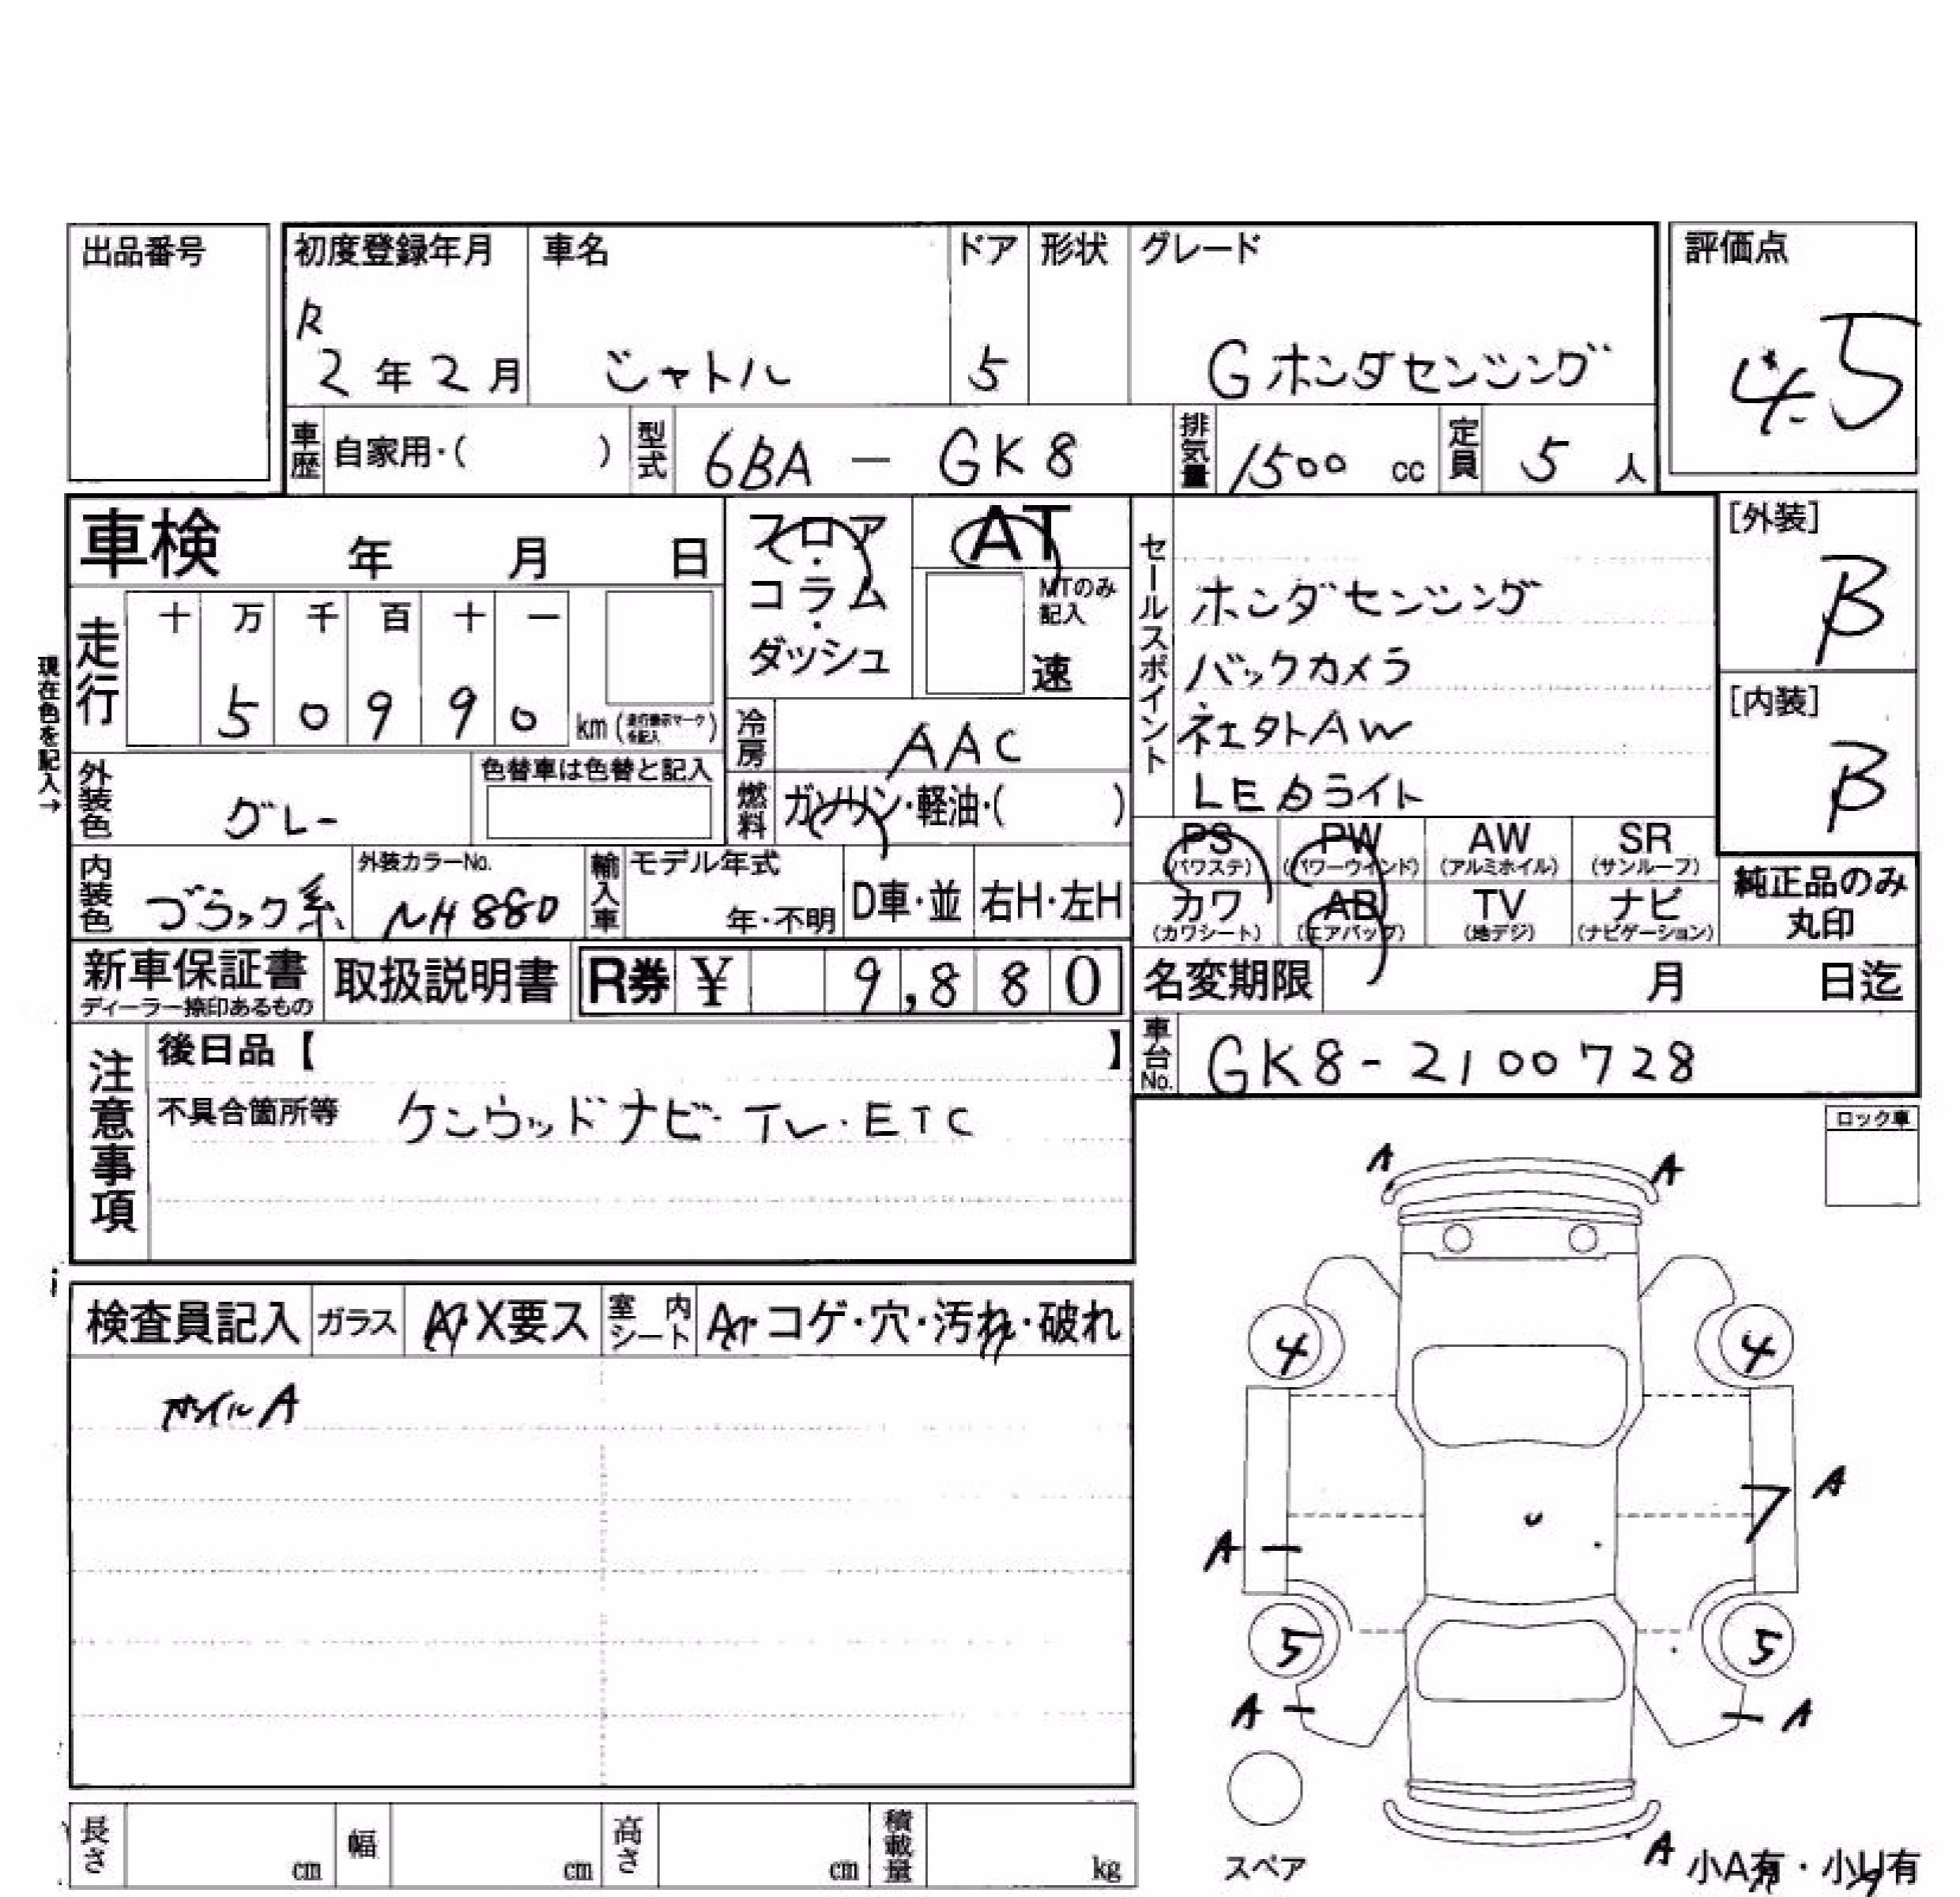 出品番号
初度登録年月 車名 ドア 形状 グレード 評価点
R
2年2月 シャトル 5 Gホンダセンシング 4.5
車歴 自家用・( ) 型式 6BA - GK8 排気量 1500 cc 定員 5 人
車検 年 月 日
フロア・コラム・ダッシュ
AT
MTのみ記入
速
セールスポイント
ホンダセンシング
バックカメラ
社外AW
LEDライト
[外装]
B
[内装]
B
現在色を記入→
走行 十 万 千 百 十 一
5 0 9 9 0 km (走行表示マークを記入)
冷房 AAC
外装色 グレー 色替車は色替と記入
燃料 ガソリン・軽油・( )
内装色 ブラック系 外装カラーNo. NH880 輸入車 モデル年式 年・不明 D車・並 右H・左H
PS (パワステ) PW (パワーウインド) AW (アルミホイル) SR (サンルーフ)
カワ (カワシート) AB (エアバッグ) TV (地デジ) ナビ (ナビゲーション)
純正品のみ丸印
新車保証書 ディーラー捺印あるもの 取扱説明書 R券 ¥ 9,880
名変期限 月 日迄
車台No. GK8-2100728
注意事項
後日品【 】
不具合箇所等 ケンウッドナビ・TV・ETC
ロック車
検査員記入 ガラス A・X要ス 室内シート A・コゲ・穴・汚れ・破れ
ホイルA
A A
4 4
A
A 7
5 5
A A
スペア
A 小A有・小U有
長さ cm 幅 cm 高さ cm 積載量 kg